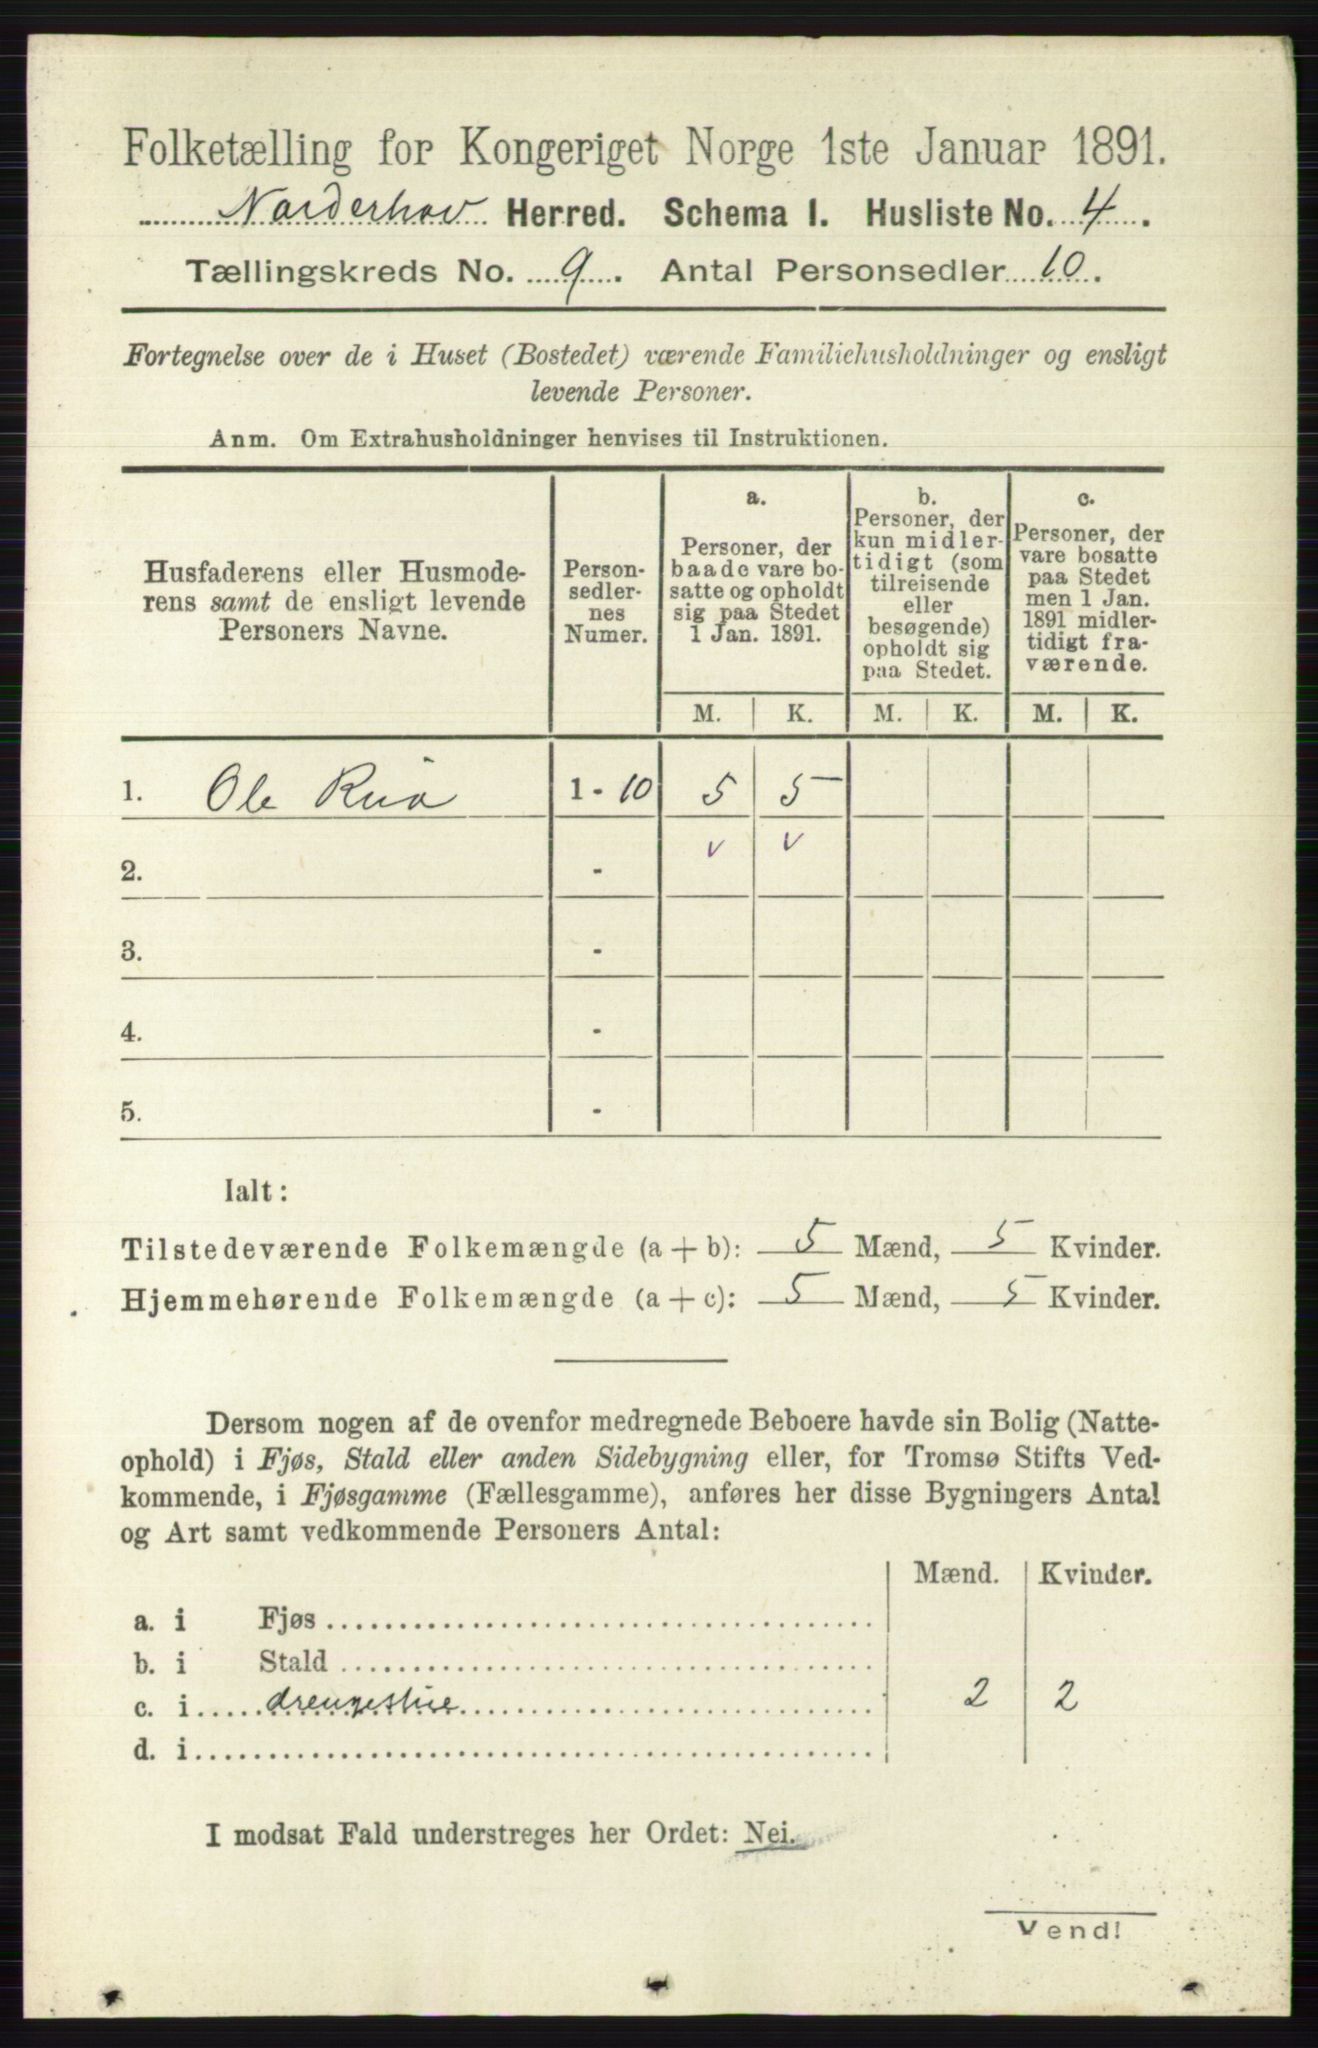 Folketælling for Kongeriget Norge 1ste Januar 1891.
Norderhov Herred. Schema I. Husliste No. 4.
Tællingskreds No. 9. Antal Personsedler 10.
Fortegnelse over de i Huset (Bostedet) værende Familiehusholdninger og ensligt
levende Personer.
Anm. Om Extrahusholdninger henvises til Instruktionen.
Husfaderens eller Husmode-
rens samt de ensligt levende
Personers Navne.
Person-
sedler-
nes
Numer.
a.
Personer, der
baade vare bo-
satte og opholdt
sig paa Stedet
1 Jan. 1891.
b.
Personer, der
kun midler-
tidigt (som
tilreisende
eller
besøgende)
opholdt sig
paa Stedet.
c.
Personer, der
vare bosatte
paa Stedet
men 1 Jan.
1891 midler-
tidigt fra-
værende.
M. K. M. K. M. K.
1. Ole Rua 1 - 10 5 5
v v
2. -
3. -
4. -
5. -
Ialt:
Tilstedeværende Folkemængde (a + b): 5 Mænd, 5 Kvinder.
Hjemmehørende Folkemængde (a + c): 5 Mænd, 5 Kvinder.
Dersom nogen af de ovenfor medregnede Beboere havde sin Bolig (Natte-
ophold) i Fjøs, Stald eller anden Sidebygning eller, for Tromsø Stifts Ved-
kommende, i Fjøsgamme (Fællesgamme), anføres her disse Bygningers Antal
og Art samt vedkommende Personers Antal:
Mænd. Kvinder.
a. i Fjøs
b. i Stald
c. i drengestue 2 2
d. i
I modsat Fald understreges her Ordet: Nei.
Vend!